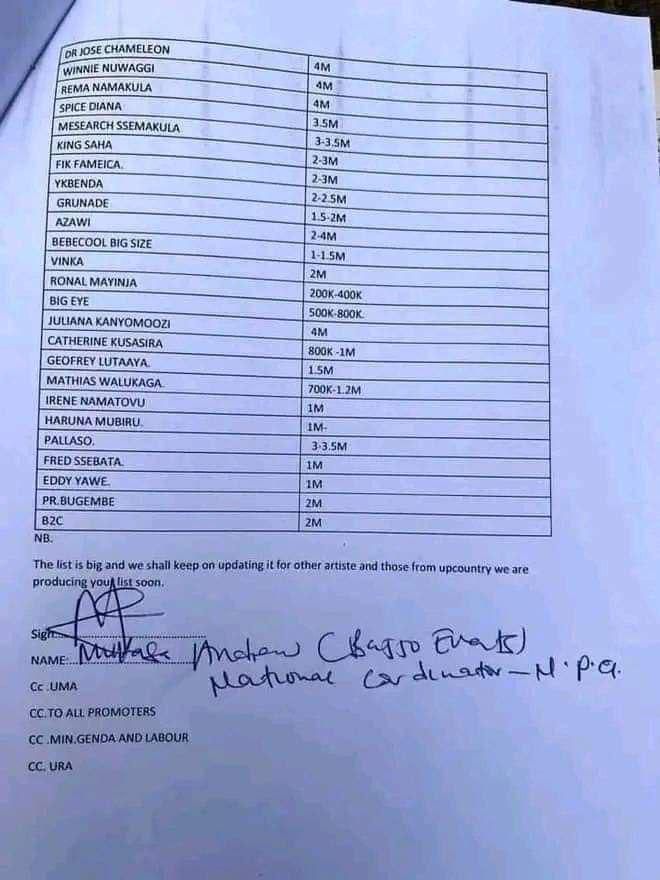 DR JOSE CHAMELEON 4M
WINNIE NUWAGGI 4M
REMA NAMAKULA 4M
SPICE DIANA 3.5M
MESEARCH SSEMAKULA 3-3.5M
KING SAHA 2-3M
FIK FAMEICA. 2-3M
YKBENDA 2-2.5M
GRUNADE 1.5-2M
AZAWI 2-4M
BEBECOOL BIG SIZE 1-1.5M
VINKA 2M
RONAL MAYINJA 200K-400K
BIG EYE 500K-800K.
JULIANA KANYOMOOZI 4M
CATHERINE KUSASIRA 800K -1M
GEOFREY LUTAAYA. 1.5M
MATHIAS WALUKAGA. 700K-1.2M
IRENE NAMATOVU 1M
HARUNA MUBIRU. 1M-
PALLASO. 3-3.5M
FRED SSEBATA. 1M
EDDY YAWE. 1M
PR.BUGEMBE 2M
B2C 2M
NB.
The list is big and we shall keep on updating it for other artiste and those from upcountry we are
producing your list soon.
Sign
NAME: Andrew (Bajjo Events)
National Cordinator - N.P.A.
Cc .UMA
CC.TO ALL PROMOTERS
CC .MIN.GENDA AND LABOUR
CC. URA